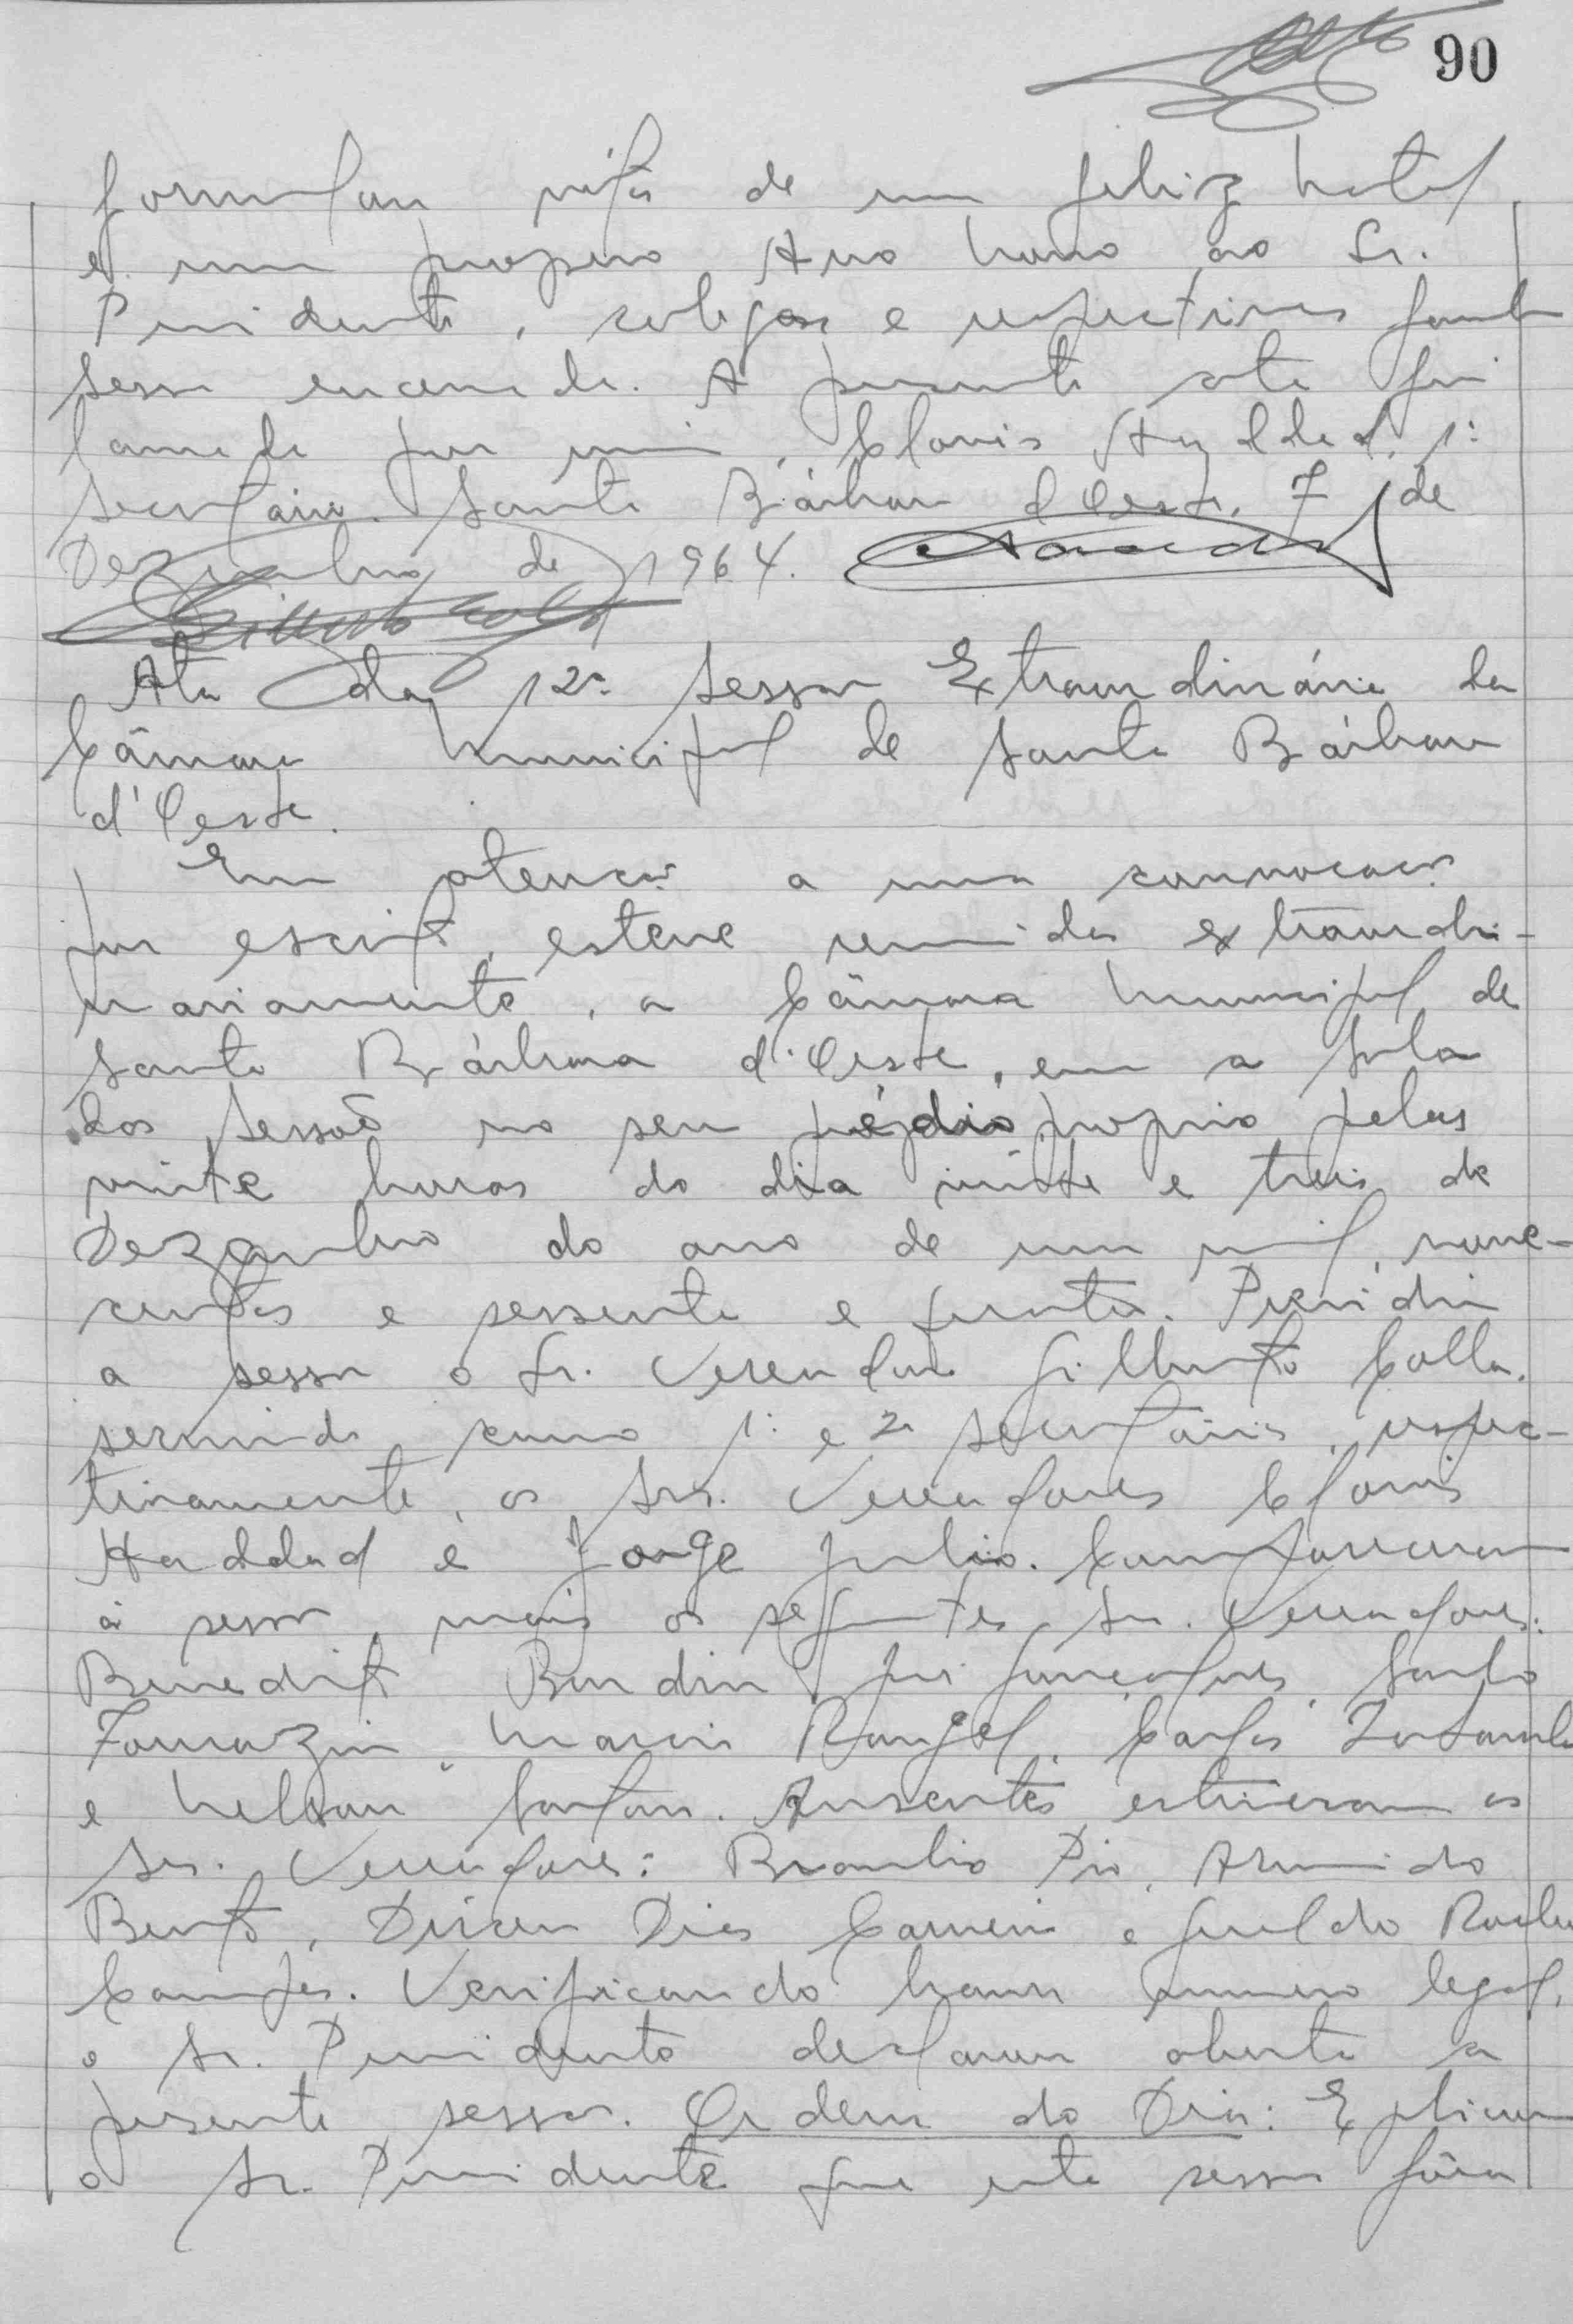 90
formulou votos de um feliz Natal
e um prospero Ano Novo ao Sr.
Presidente, colegas e respectivas
sessão encerrada. A presente ata foi
lavrada por mim, Clovis Haddad, 1º
secretário. Santa Bárbara d'Oeste, 7 de
Dezembro de 1964.
Ata da 12ª Sessão Extraordinária da
Câmara Municipal de Santa Bárbara
d'Oeste.
Em atenção a uma convocação
por escrito, esteve reunida extraordi-
nariamente, a Câmara Municipal de
Santa Bárbara d'Oeste, em a sala
das sessões no seu prédio proprio pelas
vinte horas do dia vinte e três de
Dezembro do ano de um mil, nove-
centos e sessenta e quatro. Presidiu
a sessão o Sr. Vereador Gilberto Colla,
servindo como 1º e 2º secretários, respec-
tivamente, os Srs. Vereadores Clovis
Haddad e Jorge Julio. Compareceram
à sessão, mais os seguintes Srs. Vereadores:
Benedito Santo
Tomazin, Rangel, Carlos
e Nelson. Ausentes estiveram os
Srs. Vereadores: Braulio Pio, Armindo
Bento, Dirceu Dias Carneiro e Geraldo Rocha
Campos. Verificando haver numero legal,
o Sr. Presidente declarou aberta a
presente sessão. Ordem do Dia: Explicou
o Sr. Presidente que esta sessão fôra